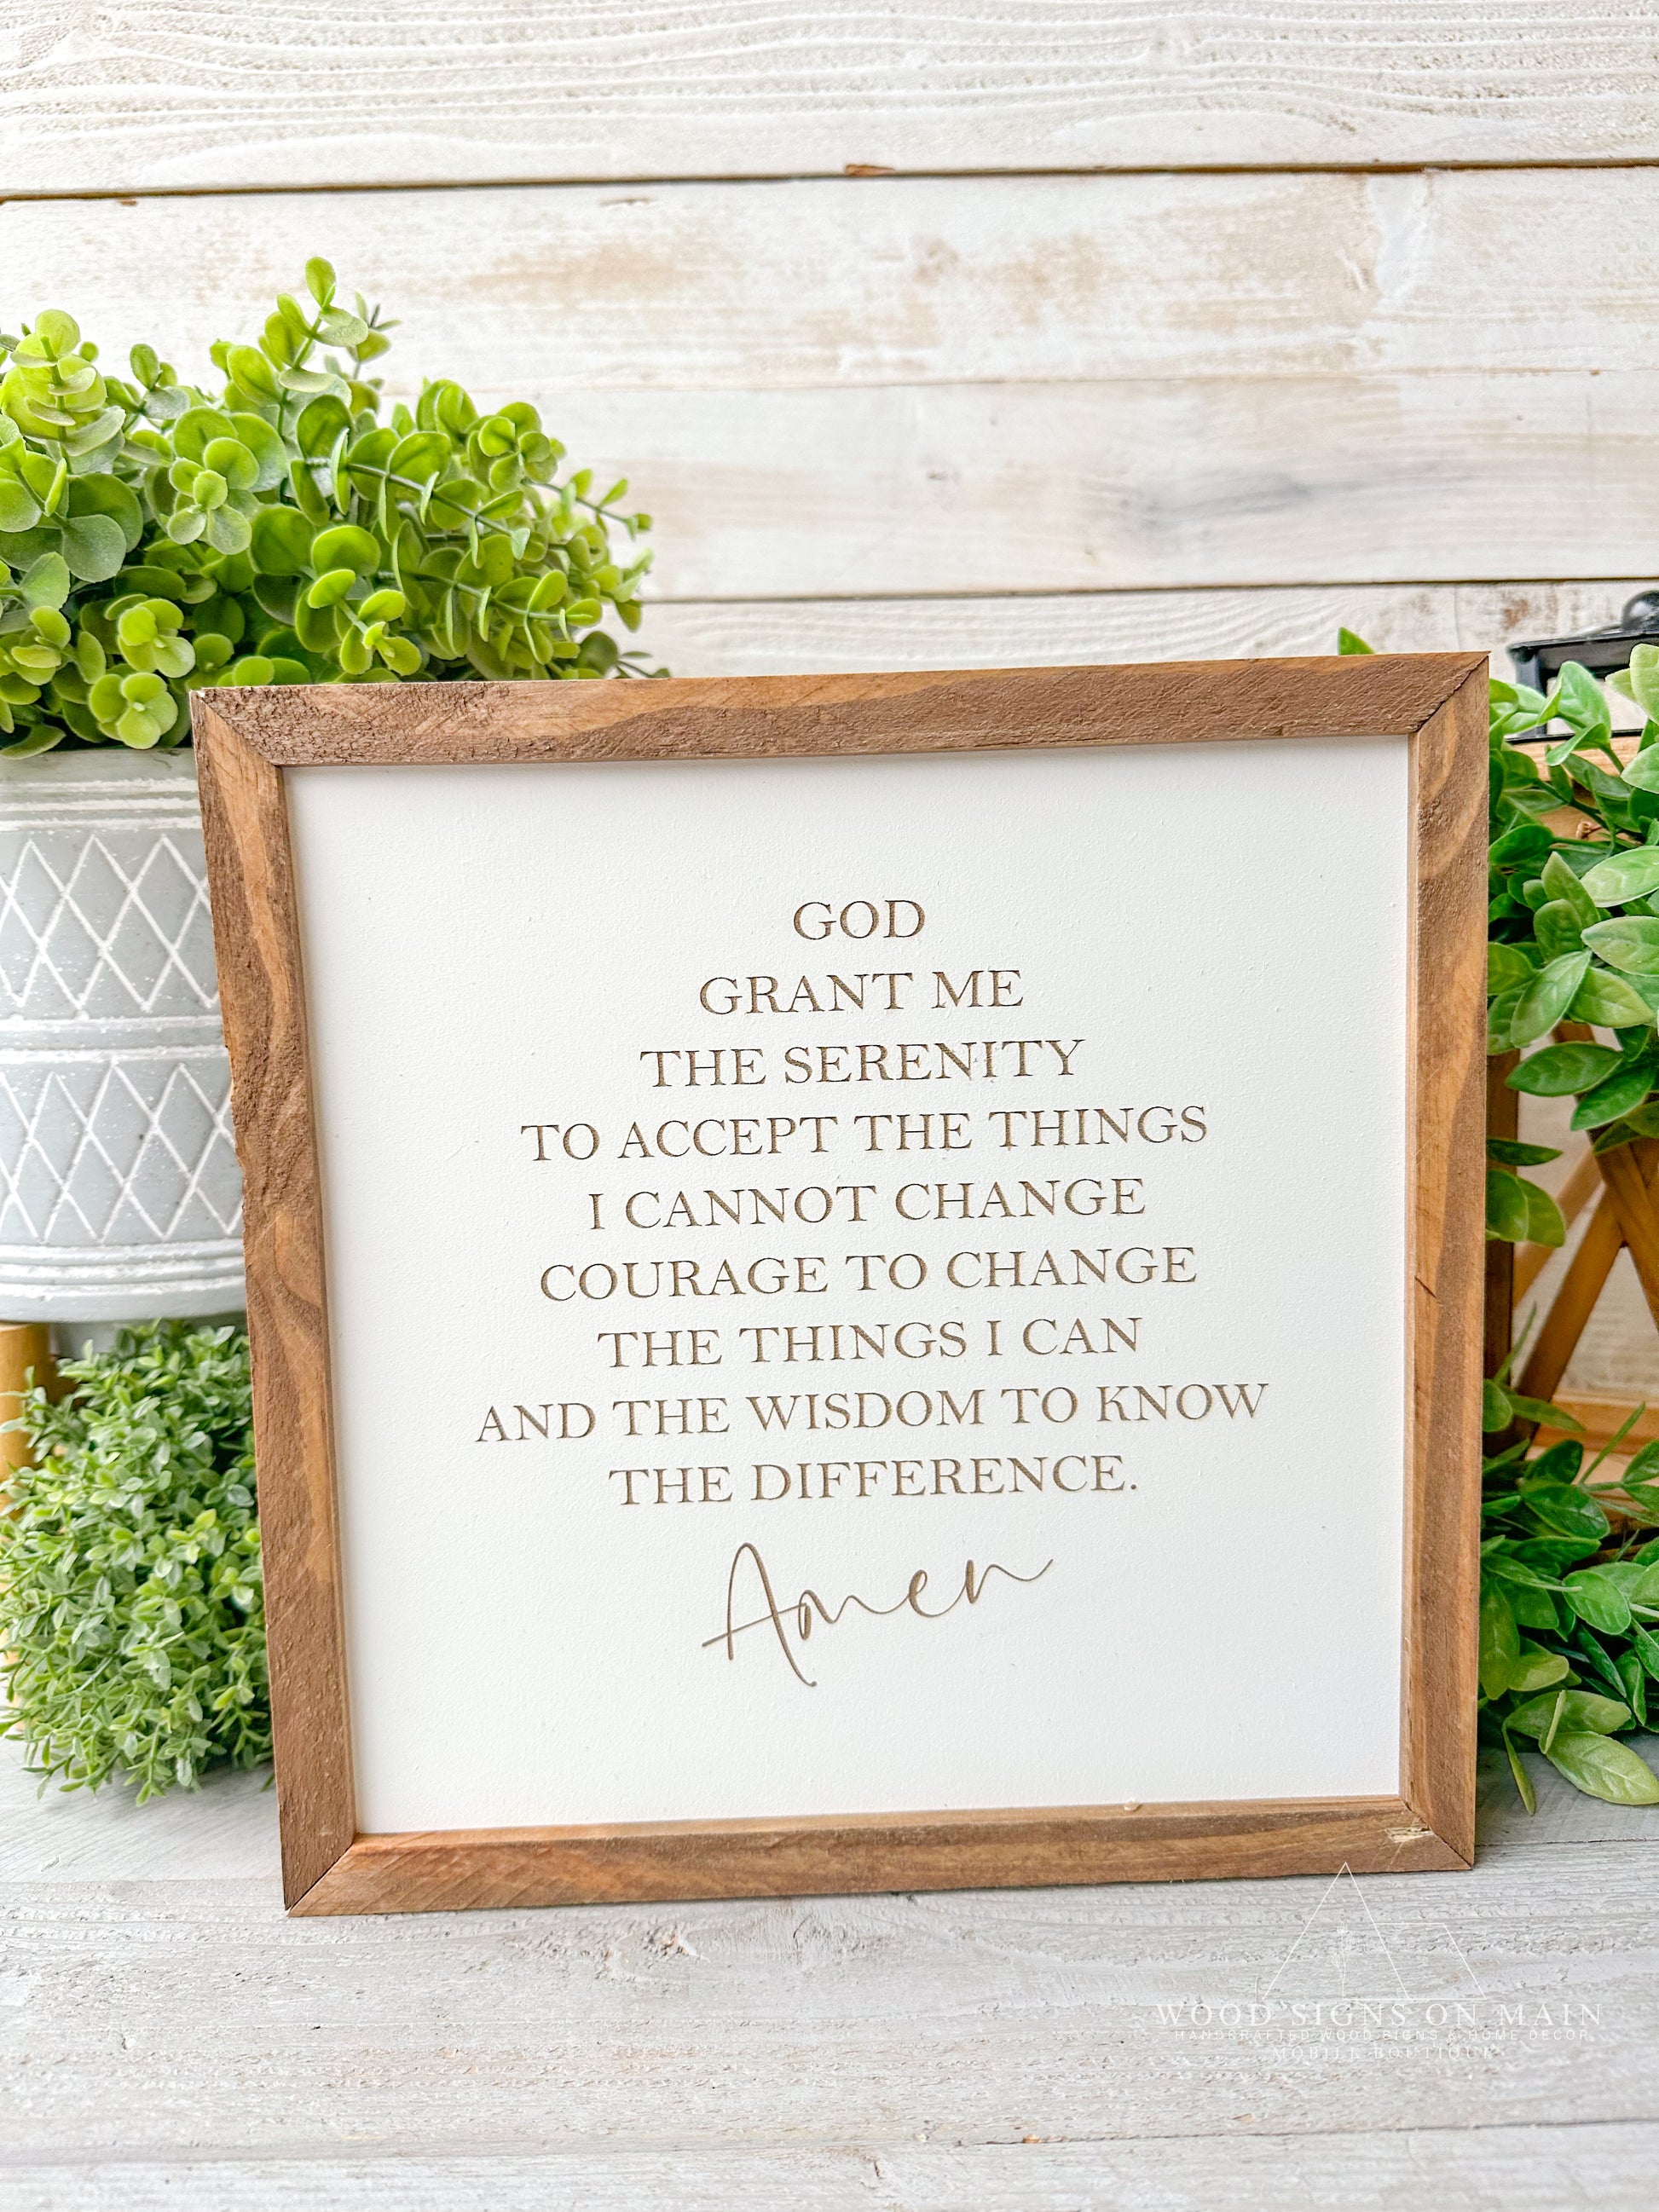 GOD
GRANT ME
THE SERENITY
TO ACCEPT THE THINGS
I CANNOT CHANGE
COURAGE TO CHANGE
THE THINGS I CAN
AND THE WISDOM TO KNOW
THE DIFFERENCE.
Amen
WOOD SIGNS ON MAIN
HANDCRAFTED WOOD SIGNS & HOME DECOR
MOBILE BOUTIQUE